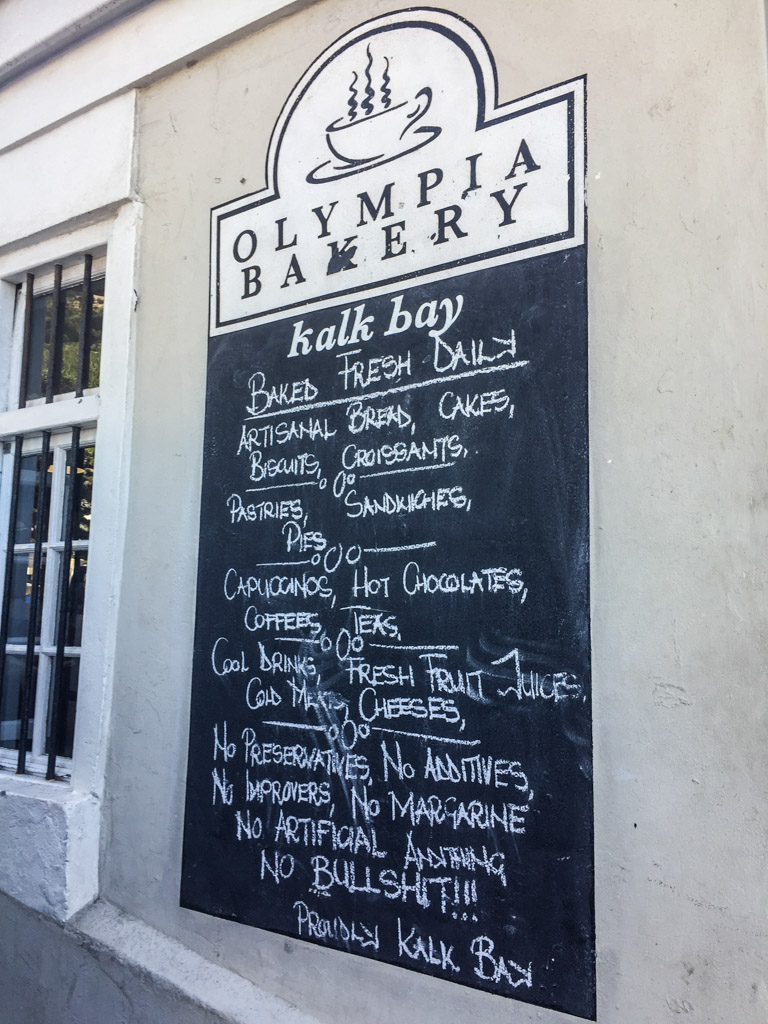 OLYMPIA
BAKERY
kalk bay
BAKED FRESH DAILY
ARTISANAL BREAD, CAKES,
BISCUITS, CROISSANTS,
PASTRIES, SANDWICHES,
PIES
CAPUCCINOS, HOT CHOCOLATES,
COFFEES, TEAS,
COOL DRINKS, FRESH FRUIT JUICES,
COLD MEATS, CHEESES,
NO PRESERVATIVES, NO ADDITIVES,
NO IMPROVERS, NO MARGARINE
NO ARTIFICIAL ANYTHING
NO BULLSHIT!!!
PROUDLY KALK BAY